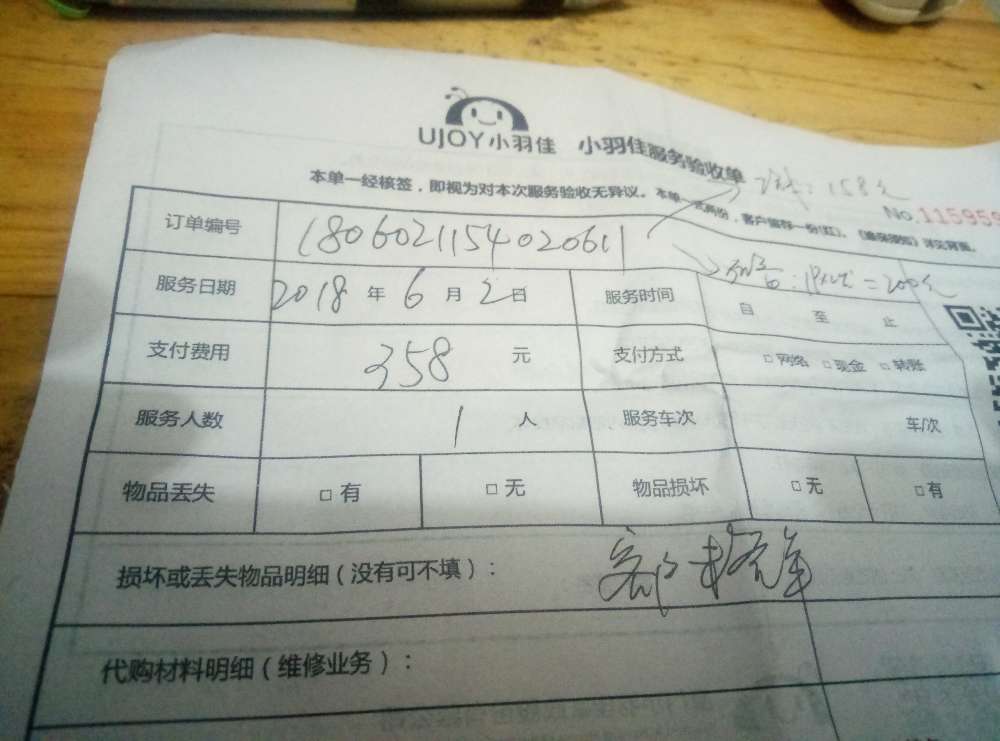 UJOY小羽佳 小羽佳服务验收单
158元
本单一经核签,即视为对本次服务验收无异议。本单一式两份,客户留存一份(红)。
No.115959
订单编号 180602115402061
200元
服务日期 2018 年 6 月 2 日 服务时间 自 至 止
支付费用 358 元 支付方式 □网络 □现金 □转账
服务人数 1 人 服务车次 车/次
物品丢失 □有 □无 物品损坏 □无 □有
损坏或丢失物品明细(没有可不填):
代购材料明细(维修业务):